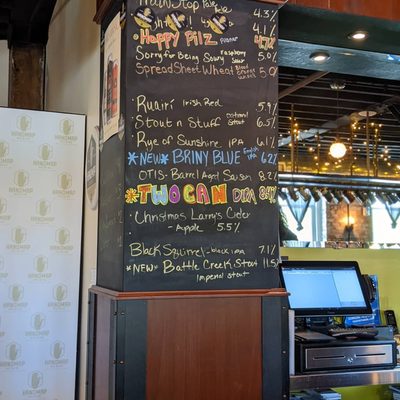 Train Stop Pale Ale 4.3%
4.1%
Hoppy Pilz pilsner 4.7%
Sorry for Being Soury raspberry sour 5.0%
SpreadSheet Wheat Blood Orange wheat 5.0
Ruairí Irish Red 5.9%
Stout n Stuff Oatmeal Stout 6.5%
Rye of Sunshine IPA 6.1%
*NEW* BRINY BLUE 6.2%
OTIS - Barrel Aged Saison 8.2%
*TWO CAN DIPA 8.4%
Christmas Larry's Cider
- Apple 5.5%
Black Squirrel - black IPA 7.1%
*NEW* Battle Creek Stout 11.5%
Imperial Stout